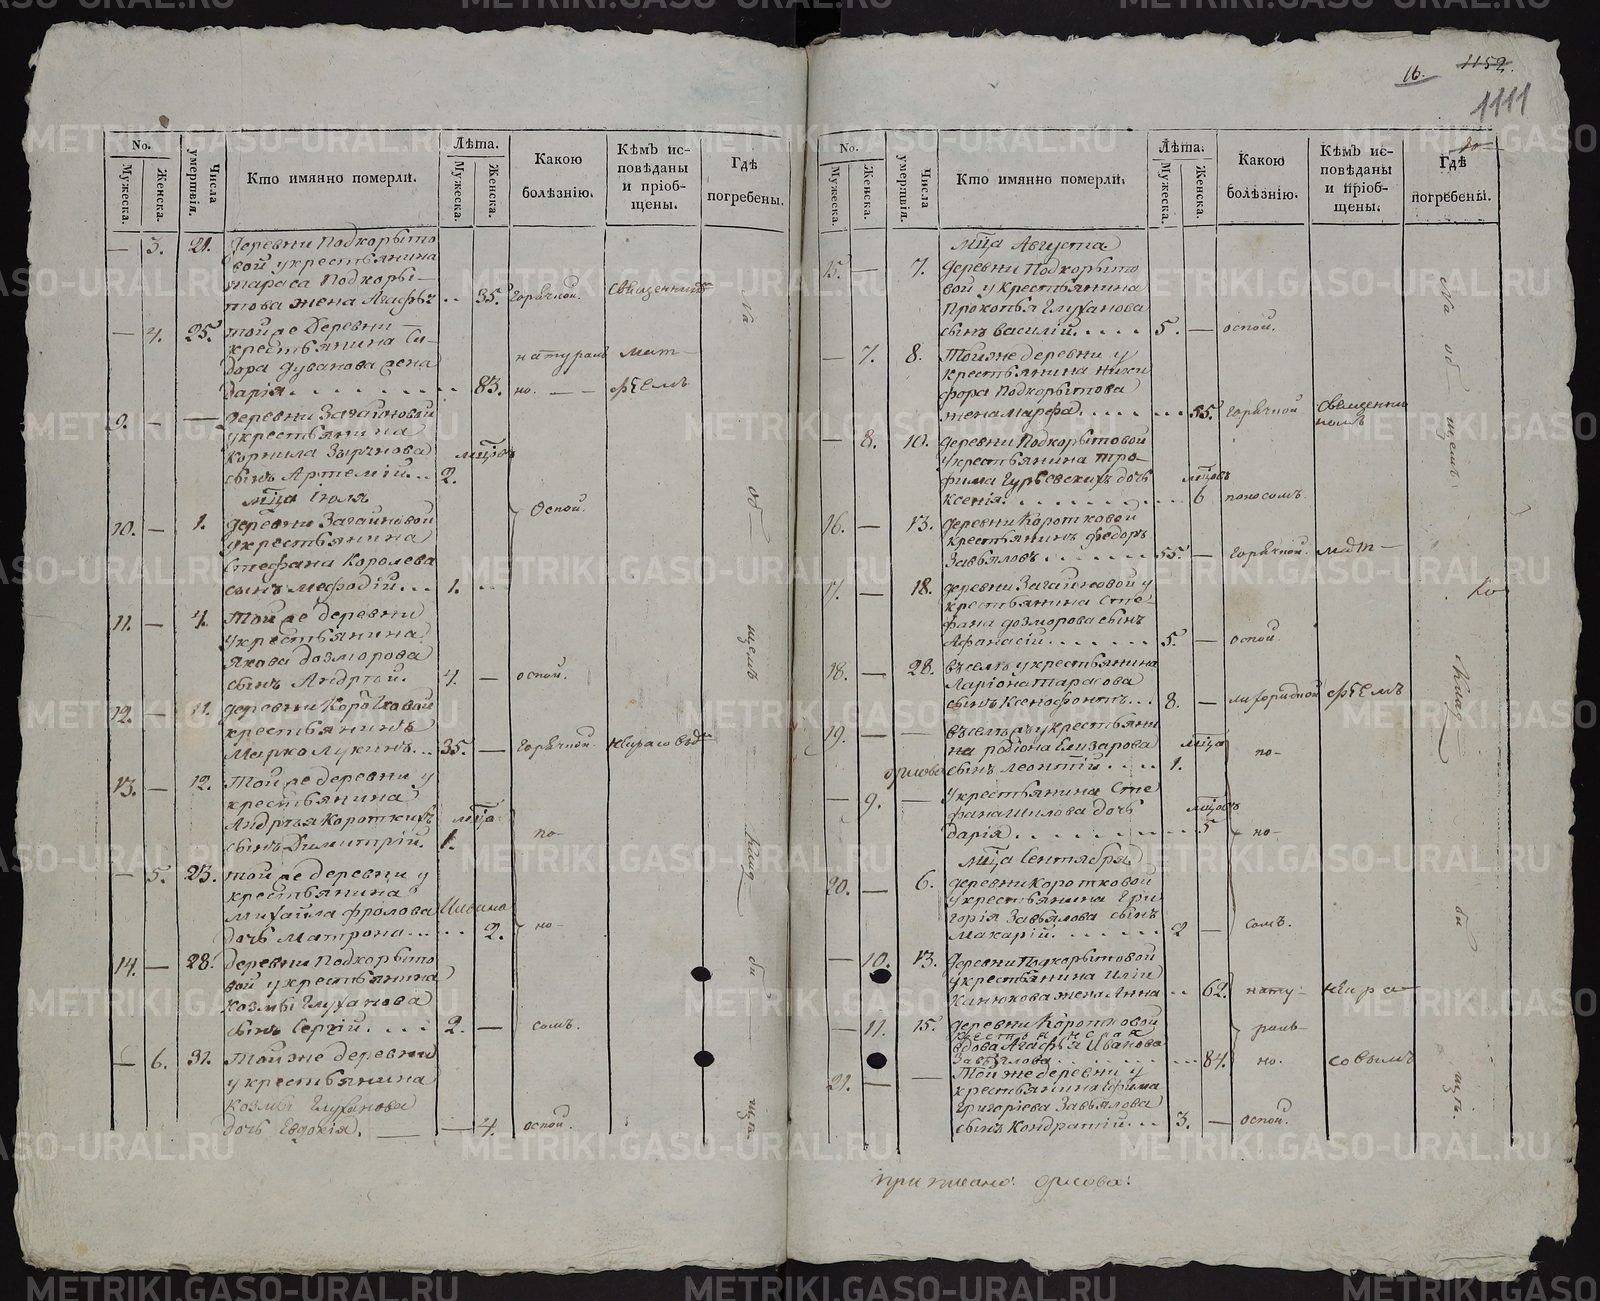 16. 1152.
1111
No.
Мужеска.
Женска.
Числа умершія.
Кто имянно померли.
Лѣта.
Мужеска.
Женска.
Какою болѣзнію.
Кѣмъ ис-
повѣданы
и пріоб-
щены.
Гдѣ
погребены.
— 3. 21. Деревни Подкорыто
вой у крестьянина
Тараса Подкоры-
това жена Агафья .. 35. горячкой. священникомъ
— 4. 25. той же деревни
крестьянина Си-
дора Дуванова жена
Дарія . . . . 83. натураль
но. — —
9. — — деревни Загайновой
у крестьянина
Корнила Зырянова
сынъ Артемій . . 2. мцовъ
мца Іюля
10. — 1. деревни Загайновой
у крестьянина
Стефана Королева
сынъ Мефодій . . . 1. оспой.
11. — 4. Той же деревни
у крестьянина
Якова Дозморова
сынъ Андрей. 4. — оспой.
12. — 11. деревни Коротковой
крестьянинъ
Марко Лукинъ . . 35. — горячкой.
13. — 12. Той же деревни у
крестьянина
Андрея Короткихъ
сынъ Димитрій. 1. мца по-
— 5. 23. той же деревни у
крестьянина
Михайла Фролова
дочь Матрона . . . 2. но-
14. — 28. деревни Подкорыто
вой у крестьянина
Козмы Глуханова
сынъ Сергій . . . 2. — сомъ.
— 6. 31. Той же деревни
у крестьянина
Козмы Глуханова
дочь Евдокія. — 4. оспой.
На об щемъ клад би щѣ.
No.
Мужеска.
Женска.
Числа умершія.
Кто имянно померли.
Лѣта.
Мужеска.
Женска.
Какою
болѣзнію.
Кѣмъ ис-
повѣданы
и пріоб-
щены.
Гдѣ
погребены.
мца Августа
15. — 7. деревни Подкорыто
вой у крестьянина
Прокопья Глуханова
сынъ Василій . . . . 5. — оспой.
— 7. 8. Той же деревни у
крестьянина Ники
фора Подкорытова
жена Марфа . . . . 55. горячкой священни
комъ
— 8. 10. деревни Подкорытовой
у крестьянина Тро-
фима Гурьевскихъ дочь
Ксенія . . . . мцовъ 6 поносомъ.
16. — 13. деревни Коротковой
крестьянинъ Федоръ
Завьяловъ . . . . 55. — горячкой.
17. — 18. деревни Загайновой у
крестьянина Сте-
фана Дозморова сынъ
Афанасій . . . . 5. — оспой.
18. — 28. въ селѣ у крестьянина
Ларіона Тарасова
сынъ Ксенофонтъ . . 8. — лихорадкой
19. — — въ селѣ у крестьяни
на Родіона Елизарова
сынъ Леонтій . . . . 1. мца по-
— 9. — у крестьянина Сте
фана Шилова дочь
Дарія . . . . мцовъ 5 но-
мца Сентября
20. — 6. деревни Коротковой
у крестьянина Гри
горія Завьялова сынъ
Макарій . . . . 2 — сомъ.
— 10. 13. деревни Подкорытовой
у крестьянина Иліи
Канюкова жена Анна .. 62. нату-
— 11. 15. деревни Коротковой
вдова Агафья Иванова
Завьялова . . . . 84. раль-
но.
21. — — Той же деревни у
крестьянина Ефима
Григорьева Завьялова
сынъ Кондратій . . . 3. — оспой.
На об щемъ клад би щѣ.
METRIKI.GASO-URAL.RU